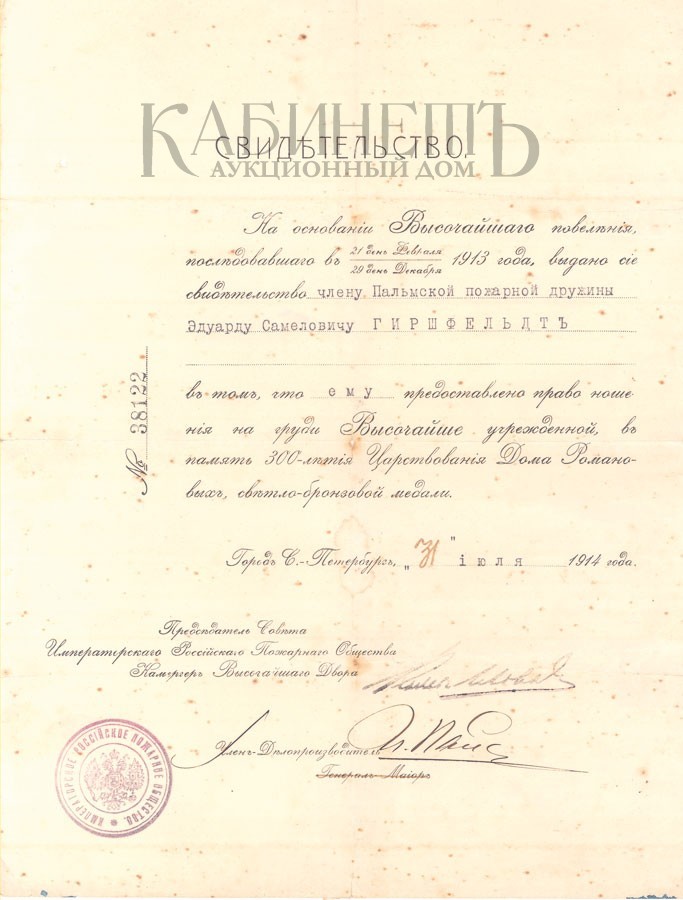 КАБИНЕТЪ
СВИДѢТЕЛЬСТВО.
АУКЦИОННЫЙ ДОМ
На основаніи Высочайшаго повелѣнія,
послѣдовавшаго въ 21 день Февраля 29 день Декабря 1913 года, выдано сіе
свидѣтельство члену Пальмской пожарной дружины
Эдуарду Самеловичу ГИРШФЕЛЬДТЪ
въ томъ, что ему предоставлено право ноше
нія на груди Высочайше учрежденной, въ
память 300-лѣтія Царствованія Дома Романо-
выхъ, свѣтло-бронзовой медали.
№ 38122
Городъ С.-Петербургъ, „31" іюля 1914 года.
Предсѣдатель Совѣта
Императорскаго Россійскаго Пожарнаго Общества
Камергеръ Высочайшаго Двора
Членъ-Дѣлопроизводитель
Генералъ-Маіоръ
ИМПЕРАТОРСКОЕ РОССІЙСКОЕ ПОЖАРНОЕ ОБЩЕСТВО.